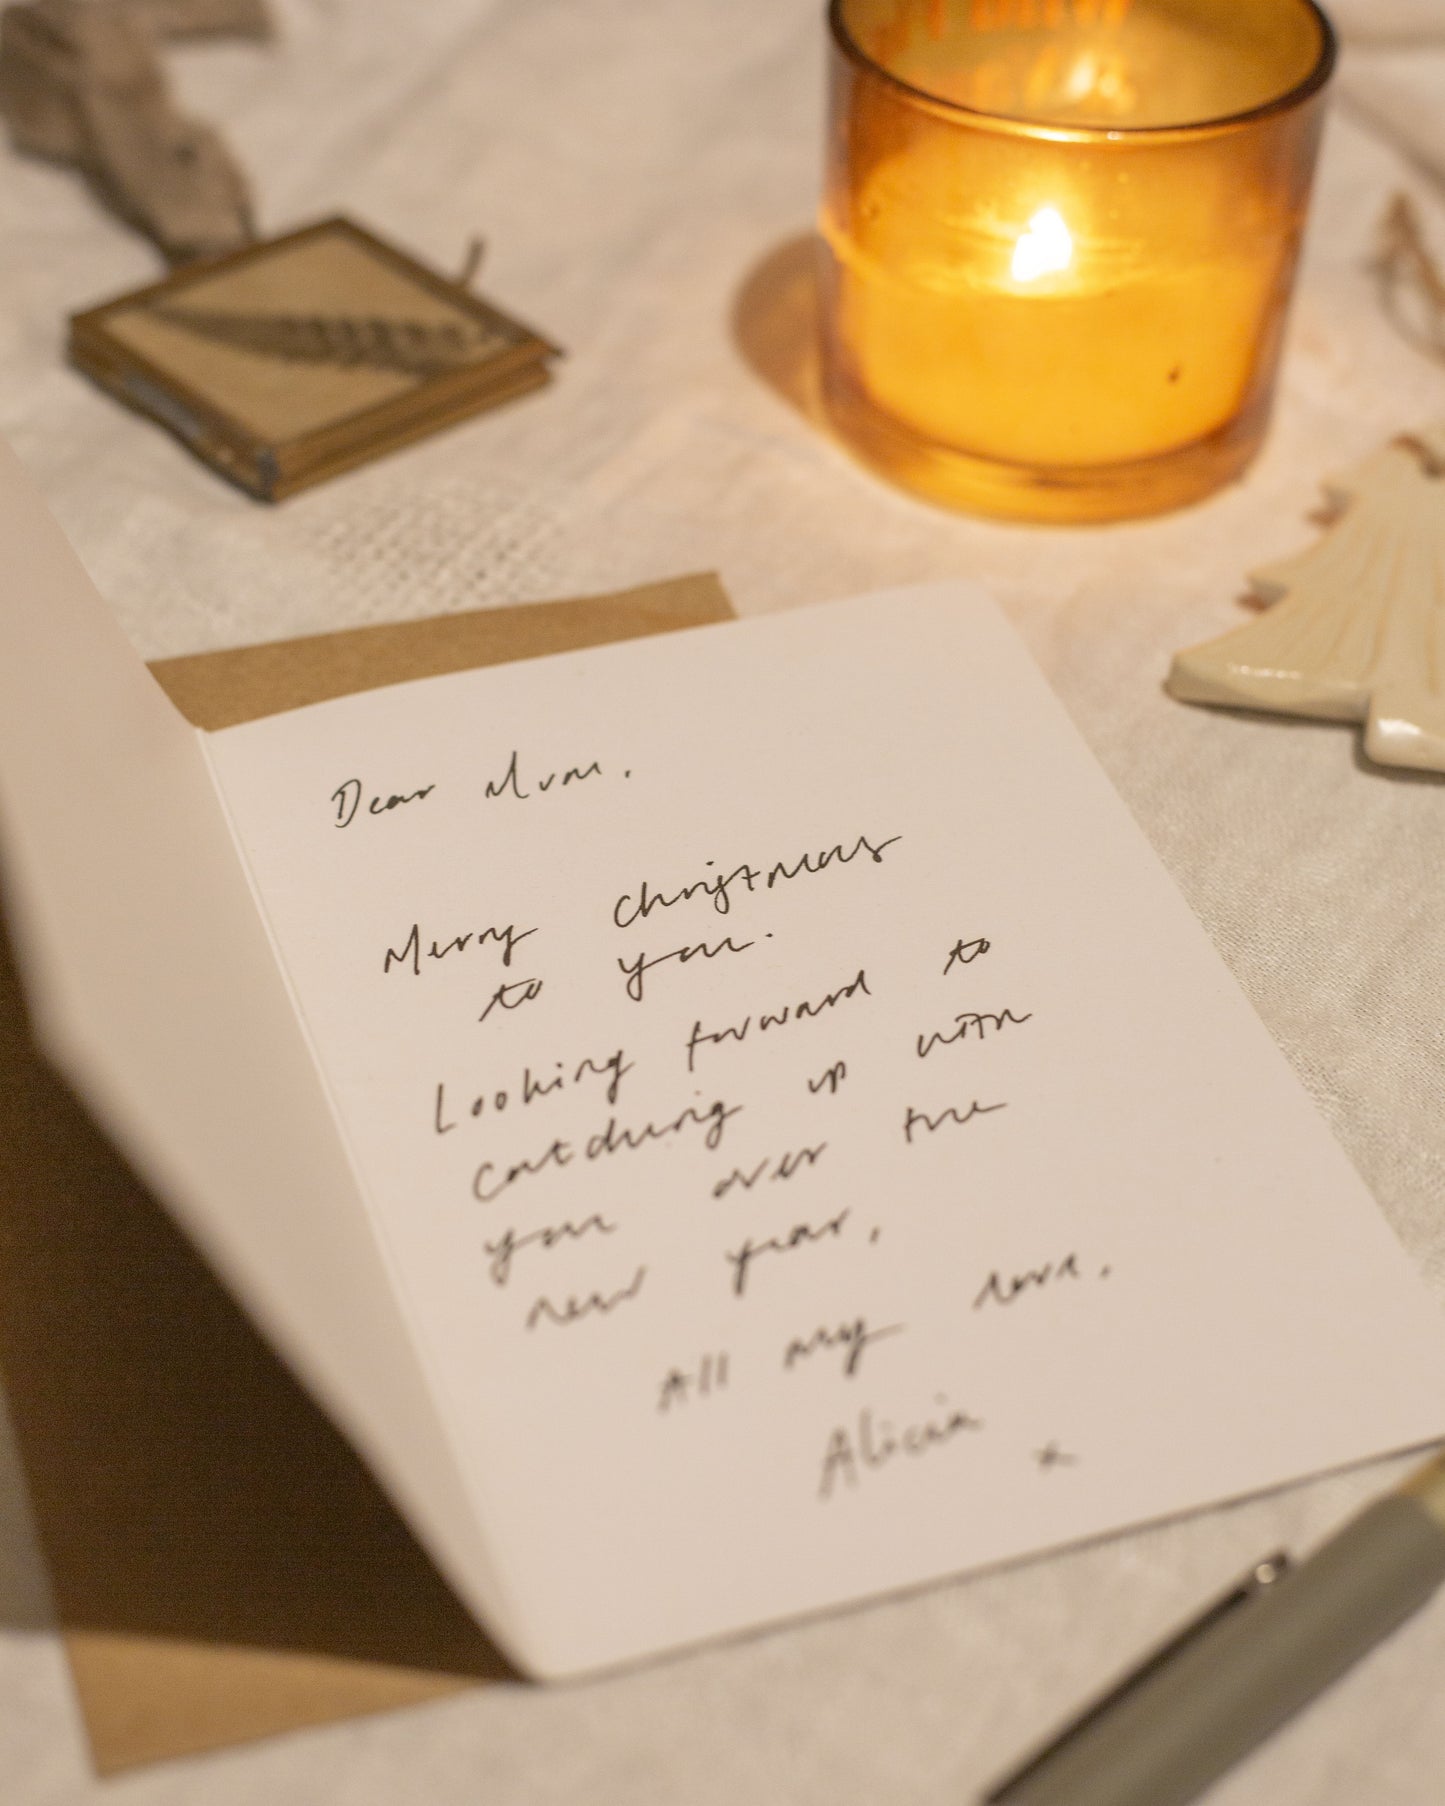 Dear Mum,
Merry Christmas
to you.
Looking forward to
catching up with
you over the
new year,
All my love,
Alicia
x